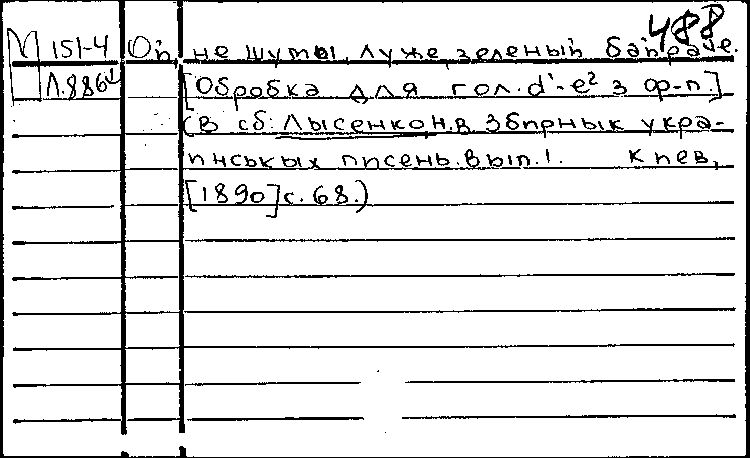 488
М 151-4 Ой, не шумы, луже, зеленый байраче.
Л.886
[Обробка для гол. d¹-e² з ф-п.]
(в сб: Лысенко Н.В Збирнык укра-
инськых писень. Вып. 1. Киев,
[1890] с. 68.)